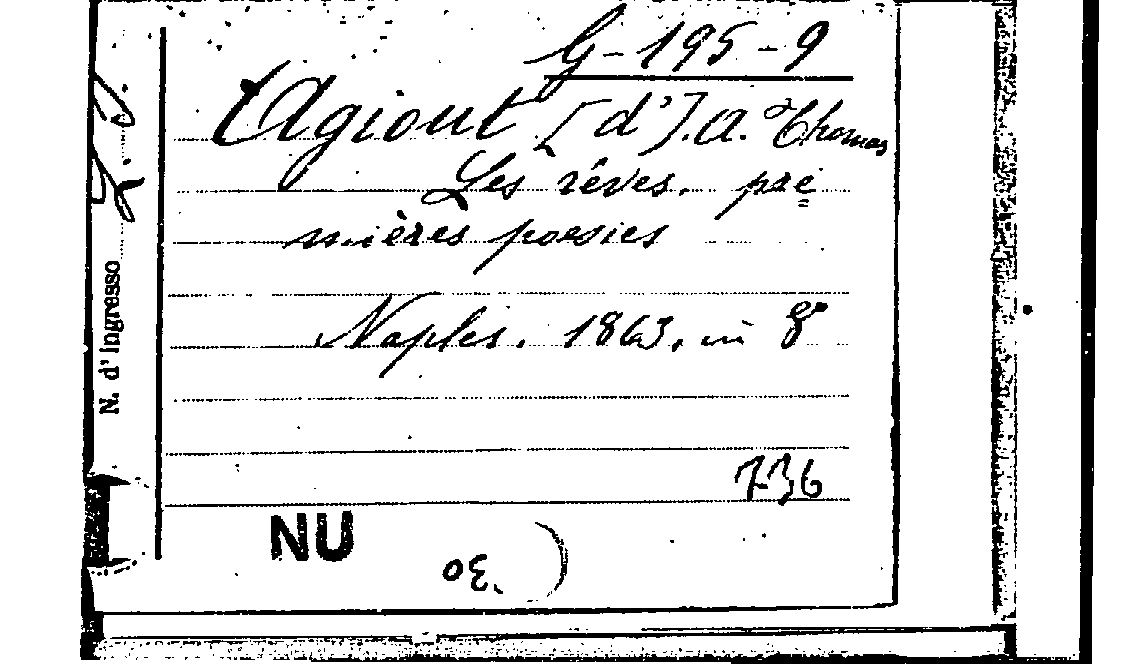 G-195-9
Agiout [d']. A. Thomas
Les rêves. pre
mières poesies
Naples. 1863. in 8°
736
NU
N. d' Ingresso